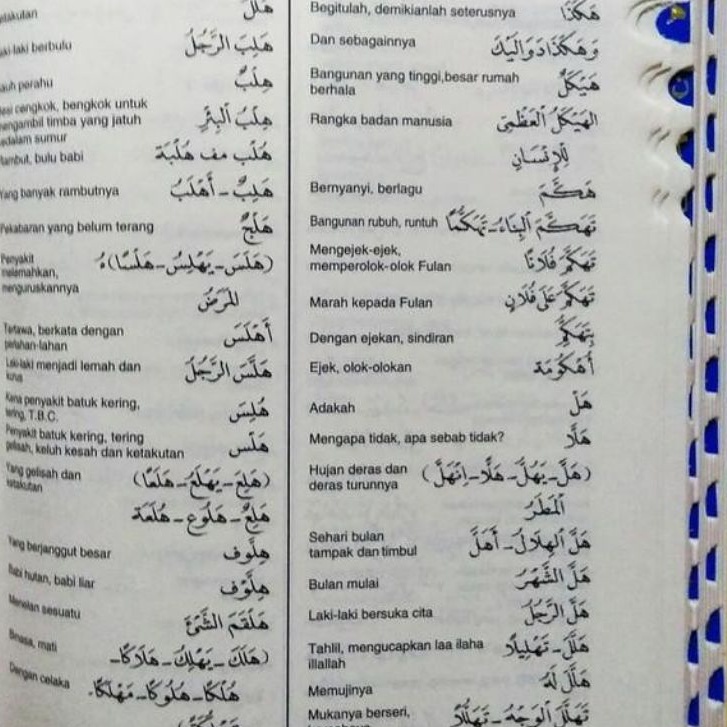 Begitulah, demikianlah seterusnya هٰكَذَا
Dan sebagainya وَهٰكَذَا دَوَالَيْكَ
Bangunan yang tinggi,besar rumah هَيْكَلٌ
berhala
Rangka badan manusia الهَيْكَلُ العَظْمِيّ
لِلْإِنْسَانِ
Bernyanyi, berlagu هَكَّمَ
Bangunan rubuh, runtuh تَهَكَّمَ البِنَاءُ - تَهَكُّمًا
Mengejek-ejek, تَهَكَّمَ فُلَانًا
memperolok-olok Fulan
Marah kepada Fulan تَهَكَّمَ عَلَى فُلَانٍ
Dengan ejekan, sindiran بِتَهَكُّمٍ
Ejek, olok-olokan أُهْكُومَة
Adakah هَلْ
Mengapa tidak, apa sebab tidak? هَلَّا
Hujan deras dan (هَلَّ - يَهُلُّ - هَلًّا - اِنْهَلَّ)
deras turunnya المَطَرُ
Sehari bulan هَلَّ الهِلَالُ - أَهَلَّ
tampak dan timbul
Bulan mulai هَلَّ الشَّهْرُ
Laki-laki bersuka cita هَلَّ الرَّجُلُ
Tahlil, mengucapkan laa ilaha هَلَّلَ - تَهْلِيلًا
illallah
Memujinya هَلَّلَ لَهُ
Mukanya berseri, تَهَلَّلَ الوَجْهُ - تَهَلُّلًا
هَلَلٌ
berbulu هَلِبَ الرَّجُلُ
perahu هِلْبٌ
cengkok, bengkok untuk هِلْبُ البِئْرِ
timba yang jatuh
sumur
bulu babi هُلْب مف هُلْبَة
banyak rambutnya هَلِبٌ - أَهْلَبُ
yang belum terang هَلْجٌ
Penyakit (هَلَسَ - يَهْلِسُ - هَلْسًا) هُ
melemahkan,
menguruskannya المَرَضُ
Tertawa, berkata dengan أَهْلَسَ
perlahan-lahan
Laki-laki menjadi lemah dan هَلَّسَ الرَّجُلُ
kurus
Kena penyakit batuk kering, هُلِسَ
tering, T.B.C.
Penyakit batuk kering, tering هَلْس
gelisah, keluh kesah dan ketakutan
Yang gelisah dan (هَلِعَ - يَهْلَعُ - هَلَعًا)
ketakutan
هَلِعٌ - هَلُوع - هُلَعَة
Yang berjanggut besar هِلَّوْف
Babi hutan, babi liar هِلَّوْف
Menelan sesuatu هَلْقَمَ الشَّيْءَ
Binasa, mati (هَلَكَ - يَهْلِكُ - هَلَاكًا -
Dengan celaka هُلْكًا - هُلُوكًا - مَهْلَكًا.